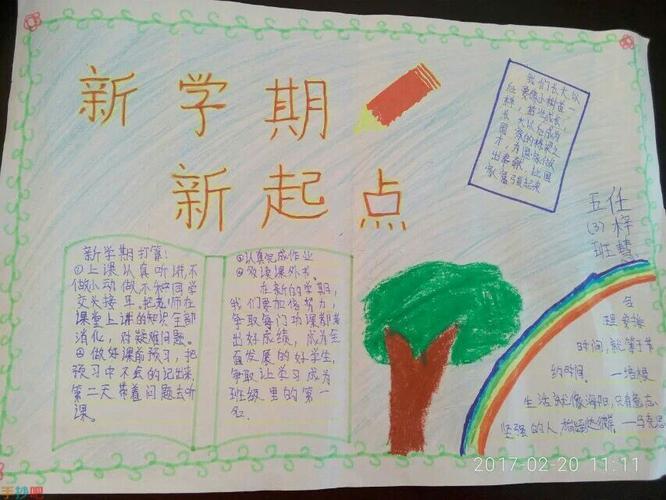 新学期
新起点
我们长大以
后要像小树苗一
样，茁壮成长，
长大以后成为
国家的栋梁之
才，为国家做
出奉献，让国
家富强起来
五(3)班
任梓慧
新学期打算：
①上课认真听讲,不
做小动做不和同学
交头接耳.把老师在
课堂上讲的知识全部
消化，有疑难问题。
②做好课前预习，把
预习中不会的记出来,
第二天带着问题去听
课。
③认真完成作业
④多读课外书。
在新的学期,
我们要加倍努力，
争取每门功课都考
出好成绩，成为全
面发展的好学生,
争取让学习成为
班级里的第一
名.
合
理安排
时间,就等于节
约时间. 一培根
生活就像海阳,只有意志
坚强的人 —马克思
2017-02-20 11:11
手抄吧